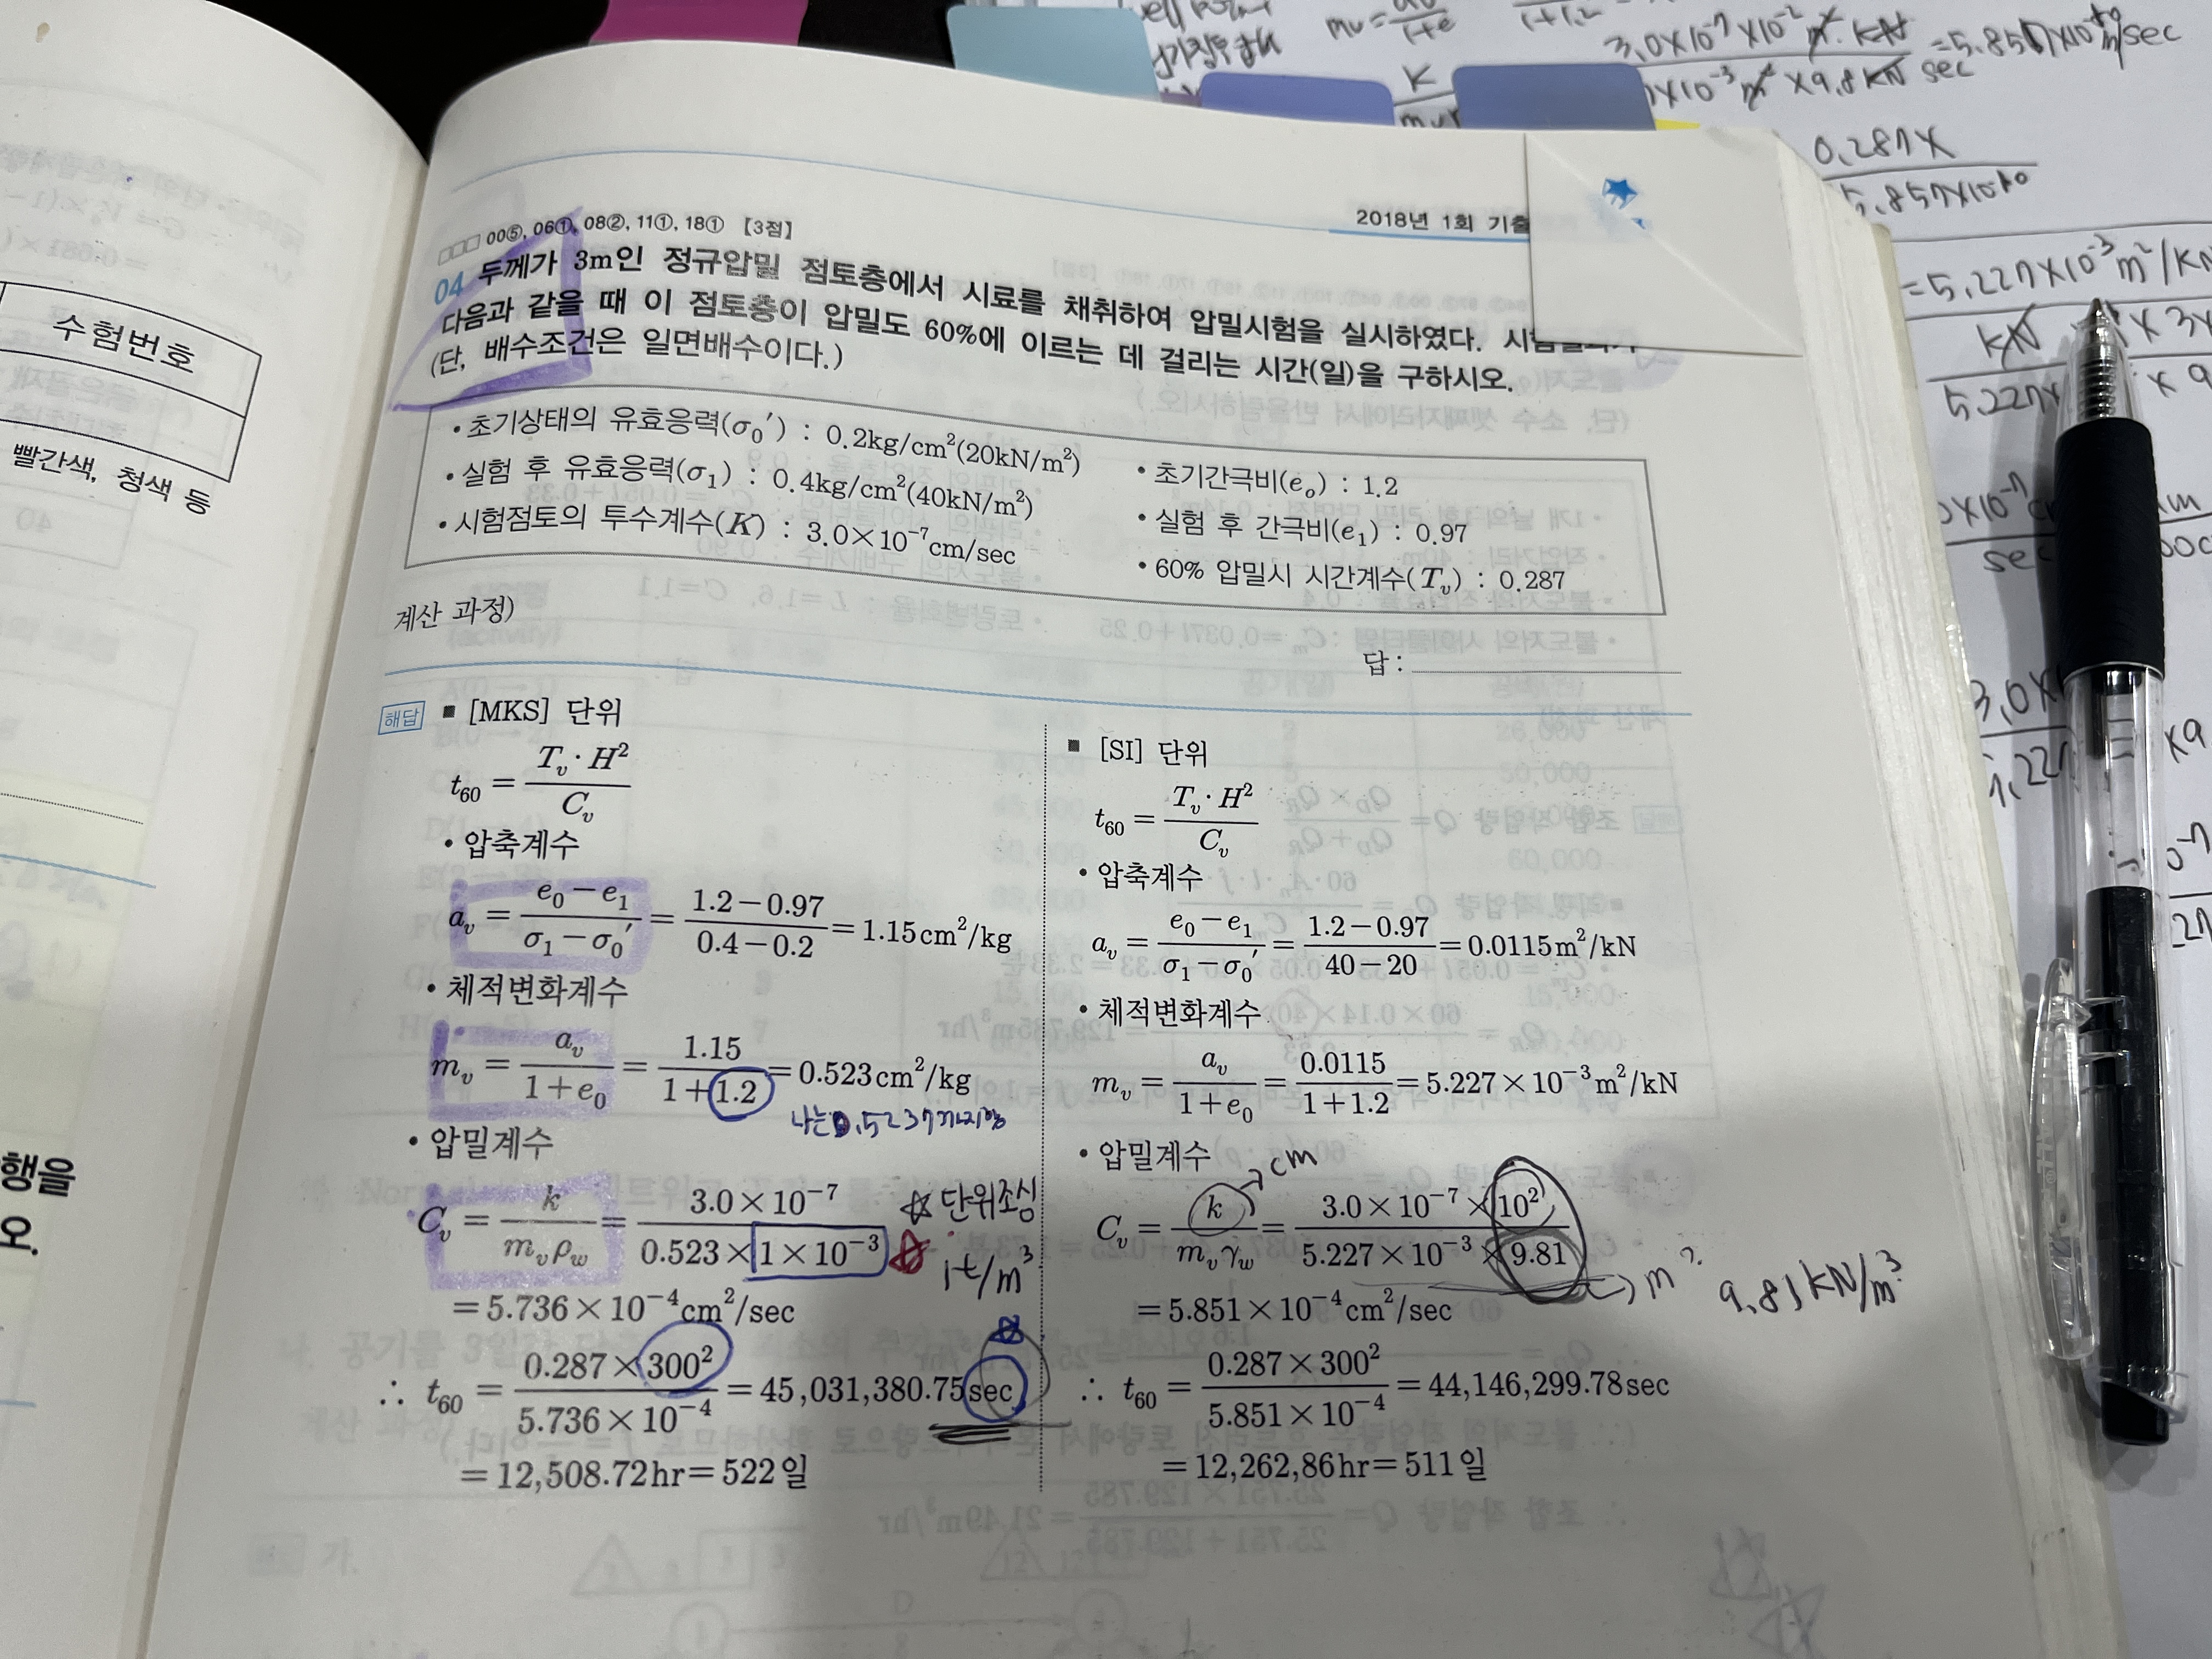 수험번호
빨간색, 청색 등
행을
오.
2018년 1회 기출
□□□ 00⑤, 06①, 08②, 11①, 18① 【3점】
04 두께가 3m인 정규압밀 점토층에서 시료를 채취하여 압밀시험을 실시하였다.
다음과 같을 때 이 점토층이 압밀도 60%에 이르는 데 걸리는 시간(일)을 구하시오.
(단, 배수조건은 일면배수이다.)
• 초기상태의 유효응력(σ₀′) : 0.2kg/cm²(20kN/m²)
• 실험 후 유효응력(σ₁) : 0.4kg/cm²(40kN/m²)
• 시험점토의 투수계수(K) : 3.0×10⁻⁷cm/sec
• 초기간극비(eₒ) : 1.2
• 실험 후 간극비(e₁) : 0.97
• 60% 압밀시 시간계수(Tᵥ) : 0.287
계산 과정)
답 :
해답 ■ [MKS] 단위
t₆₀ = Tᵥ·H² / Cᵥ
• 압축계수
aᵥ = (e₀−e₁)/(σ₁−σ₀′) = (1.2−0.97)/(0.4−0.2) = 1.15cm²/kg
• 체적변화계수
mᵥ = aᵥ/(1+e₀) = 1.15/(1+1.2) = 0.523cm²/kg
나는 0.5237까지함
• 압밀계수
Cᵥ = k/(mᵥρw) = 3.0×10⁻⁷/(0.523×1×10⁻³) ☆ 단위조심
1t/m³
= 5.736×10⁻⁴cm²/sec
∴ t₆₀ = 0.287×300²/(5.736×10⁻⁴) = 45,031,380.75sec
= 12,508.72hr = 522일
■ [SI] 단위
t₆₀ = Tᵥ·H² / Cᵥ
• 압축계수
aᵥ = (e₀−e₁)/(σ₁−σ₀′) = (1.2−0.97)/(40−20) = 0.0115m²/kN
• 체적변화계수
mᵥ = aᵥ/(1+e₀) = 0.0115/(1+1.2) = 5.227×10⁻³m²/kN
• 압밀계수
→cm
Cᵥ = k/(mᵥγw) = 3.0×10⁻⁷×10²/(5.227×10⁻³×9.81)
→ m? 9.81kN/m³
= 5.851×10⁻⁴cm²/sec
∴ t₆₀ = 0.287×300²/(5.851×10⁻⁴) = 44,146,299.78sec
= 12,262,86hr = 511일
0.287×
5.857×10⁻¹⁰
=5.227×10⁻³m²/kN